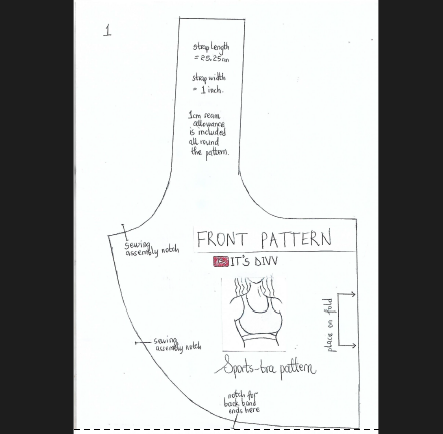 1
strap length
= 25.25cm
strap width
= 1 inch.
1cm seam
allowance
is included
all round
the pattern.
sewing
assembly notch
FRONT PATTERN
IT'S DIVV
place on fold
sewing
assembly notch
Sports-bra pattern
notch for
back band
ends here